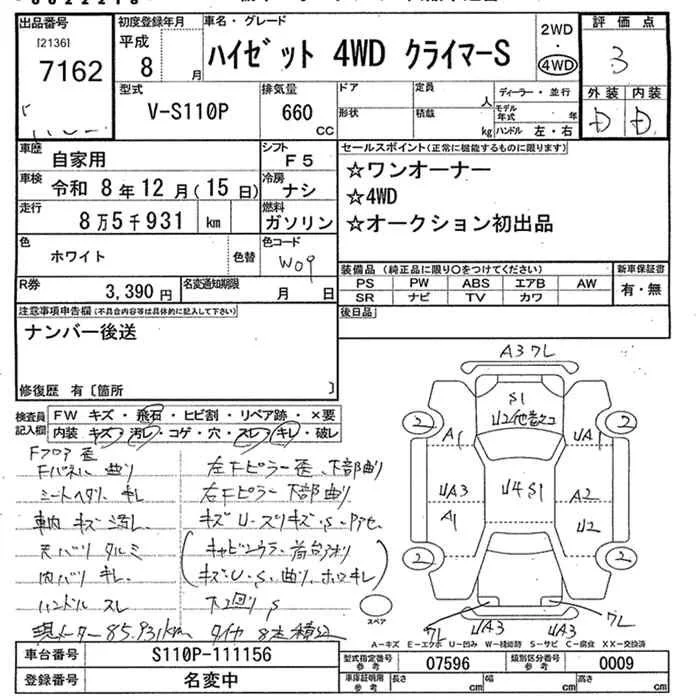 出品番号
[2136]
7162
初度登録年月
平成
8 月
車名・グレード
ハイゼット 4WD クライマーS
2WD
・
4WD
評価点
3
外装 内装
D D
型式
V-S110P
排気量
660
CC
ドア
形状
定員
人
積載
kg
ディーラー・並行
モデル年式 年
ハンドル 左・右
車歴
自家用
シフト
F5
車検
令和 8年 12月(15日)
冷房
ナシ
走行
8万5千931 km
燃料
ガソリン
色
ホワイト
色替
色コード
W09
R券
3,390円
名変通知期限
月 日
セールスポイント(正常に機能するものに限ります)
☆ワンオーナー
☆4WD
☆オークション初出品
装備品(純正品に限り○をつけてください)
PS PW ABS エアB AW
SR ナビ TV カワ
新車保証書
有・無
後日品
注意事項申告欄(不具合内容等は具体的に記入して下さい)
ナンバー後送
修復歴 有〔箇所 〕
検査員記入欄
FW キズ・飛石・ヒビ割・リペア跡・×要
内装 キズ・汚レ・コゲ・穴・スレ・キレ・破レ
Fフロア 歪
Fパネル 曲り
シートヘタリ、キレ
車内 キズ 汚レ
天バリ タルミ
内バリ キレ
ハンドル スレ
現メーター85,931km
左Fピラー 歪、下部曲り
右Fピラー 下部曲り
キズ U
キャビンウラ
キズ・U・S、曲り、ホロキレ
下回りS
タイヤ
A3 ワレ
S1
U2
A1
UA1
2
2
UA3
A1
U4 S1
A2
U2
2
2
ワレ
UA3
UA3
ワレ
スペア
A-キズ E-エクボ U-凹み W-補修跡 S-サビ C-腐食 XX-交換済
車台番号
S110P-111156
登録番号
名変中
型式指定番号
参考
07596
類別区分番号
参考
0009
車庫証明用
参考
長さ cm
幅 cm
高さ cm